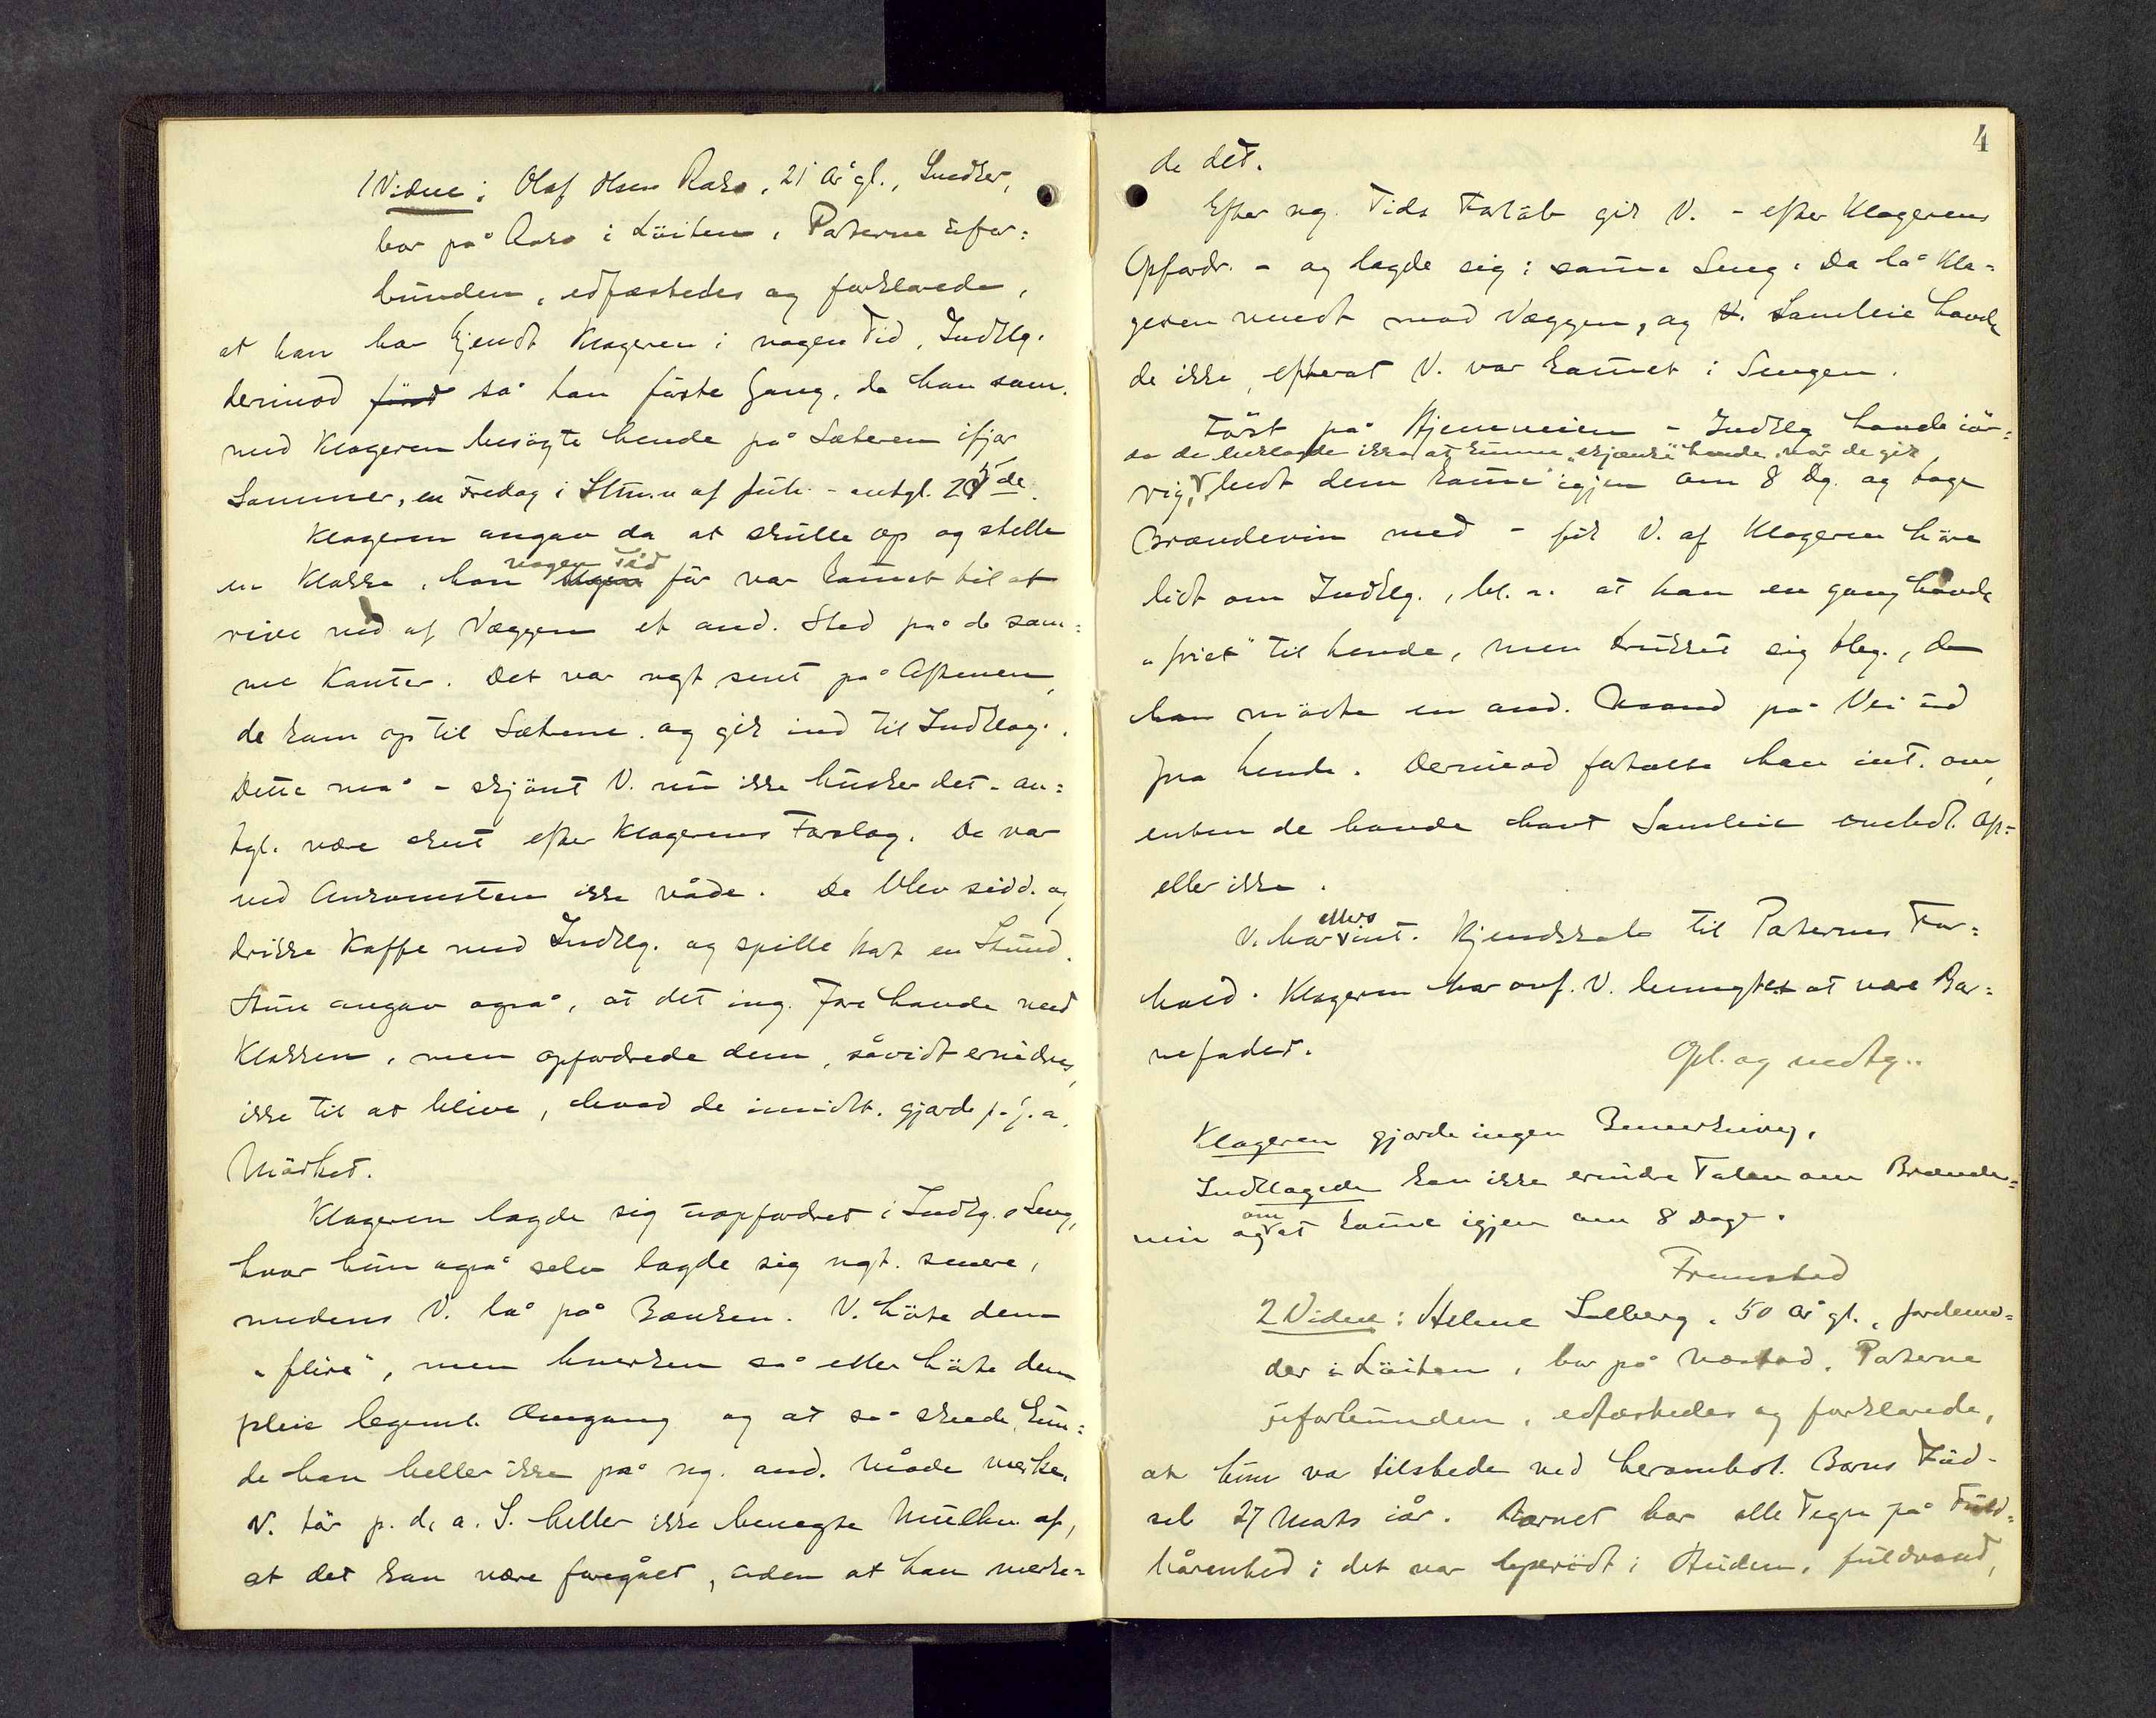 1 Vidne: Olaf Olsen Raks, 21 år gl., Snedker,
bor på Aaks i Löiten, Parterne ufor=
bunden, edfæstedes og forklarede,
at han har kjendt Klageren i nogen Tid, Indklg.
derimod först så han förste Gang, da han sam.
med Klageren besögte hende på Sæteren ifjor
Sommer, en Fredag i Slutn. af Juli - antgl. 25de.
Klageren angav da at skulle op og stelle
en Klokke, han nogen Tid för var kommet til at
rive ned af Væggen et and. Sted på de sam=
me Kanter. Det var ngt sent på Aftenen,
de kom op til Sæterne og gik ind til Indklag.
Dette må - skjönt V. nu ikke husker det - an=
tgl. være sket efter Klagerens Forslag. De var
ved Ankomsten ikke våde. De blev sidd. og
drikke Kaffe med Indklg. og spille Kort en Stund.
Hun angav også, at det ing. Fare havde med
Klokken, men opfordrede dem, såvidt erindres,
ikke til at blive, hvad de imidlt. gjorde p. g. a.
Mörket.
Klageren lagde sig uopfordret i Indklg.s Seng,
hvor hun også selv lagde sig ngt. senere,
medens V. lå på Bænken. V. hörte dem
"flire", men hverken så eller hörte dem
pleie legeml. Omgang og at så skede, kun=
de han heller ikke på ng. and. Måde merke.
V. tör p. d. a. S. heller ikke benegte Mulihn. af,
at det kan være foregået, uden at han merke=
4
de det.
Efter ng. Tids Forlöb gik V. - efter Klagerens
Opfordr. - og lagde sig i samme Seng. Da lå Kla=
geren vendt mod Væggen, og V. Samleie havde
de ikke, efterat V. var kommet i Sengen.
Först på Hjemveien - Indklg havde iöv=
da de beklagde ikke at kunne "skjænke" hende, når de gik
rigt bedt dem komme igjen om 8 Dg. og tage
Brændevin med - fik V. af Klageren höre
lidt om Indklg., bl. a. at han en gang havde
"friet" til hende, men trukket sig tbg., da
han mödte en and. Mand på Vei ud
fra hende. Derimod fortalte han int. om,
enten de havde havt Samleie omhdl. Af=
eller ikke.
V. har ellers int. Kjendskab til Parternes For=
hold. Klageren har ovf. V. benegtet at være Bar=
nefader.
Opl. og vedtg..
Klageren gjorde ingen Bemerkning,
Indklagede kan ikke erindre Talen om Brænde=
vin og om at komme igjen om 8 Dage.
Fremstod
2 Vidne: Helene Solberg, 50 år gl., Jordemo=
der i Löiten, bor på Næstad, Parterne
uforbunden, edfæstedes og forklarede,
at hun var tilstede ved heromhdl. Barns Föd-
sel 27 Marts iår. Barnet bar alle Tegn på Fuld=
bårenhed; det var lyserödt i Huden, fuldvoxt,